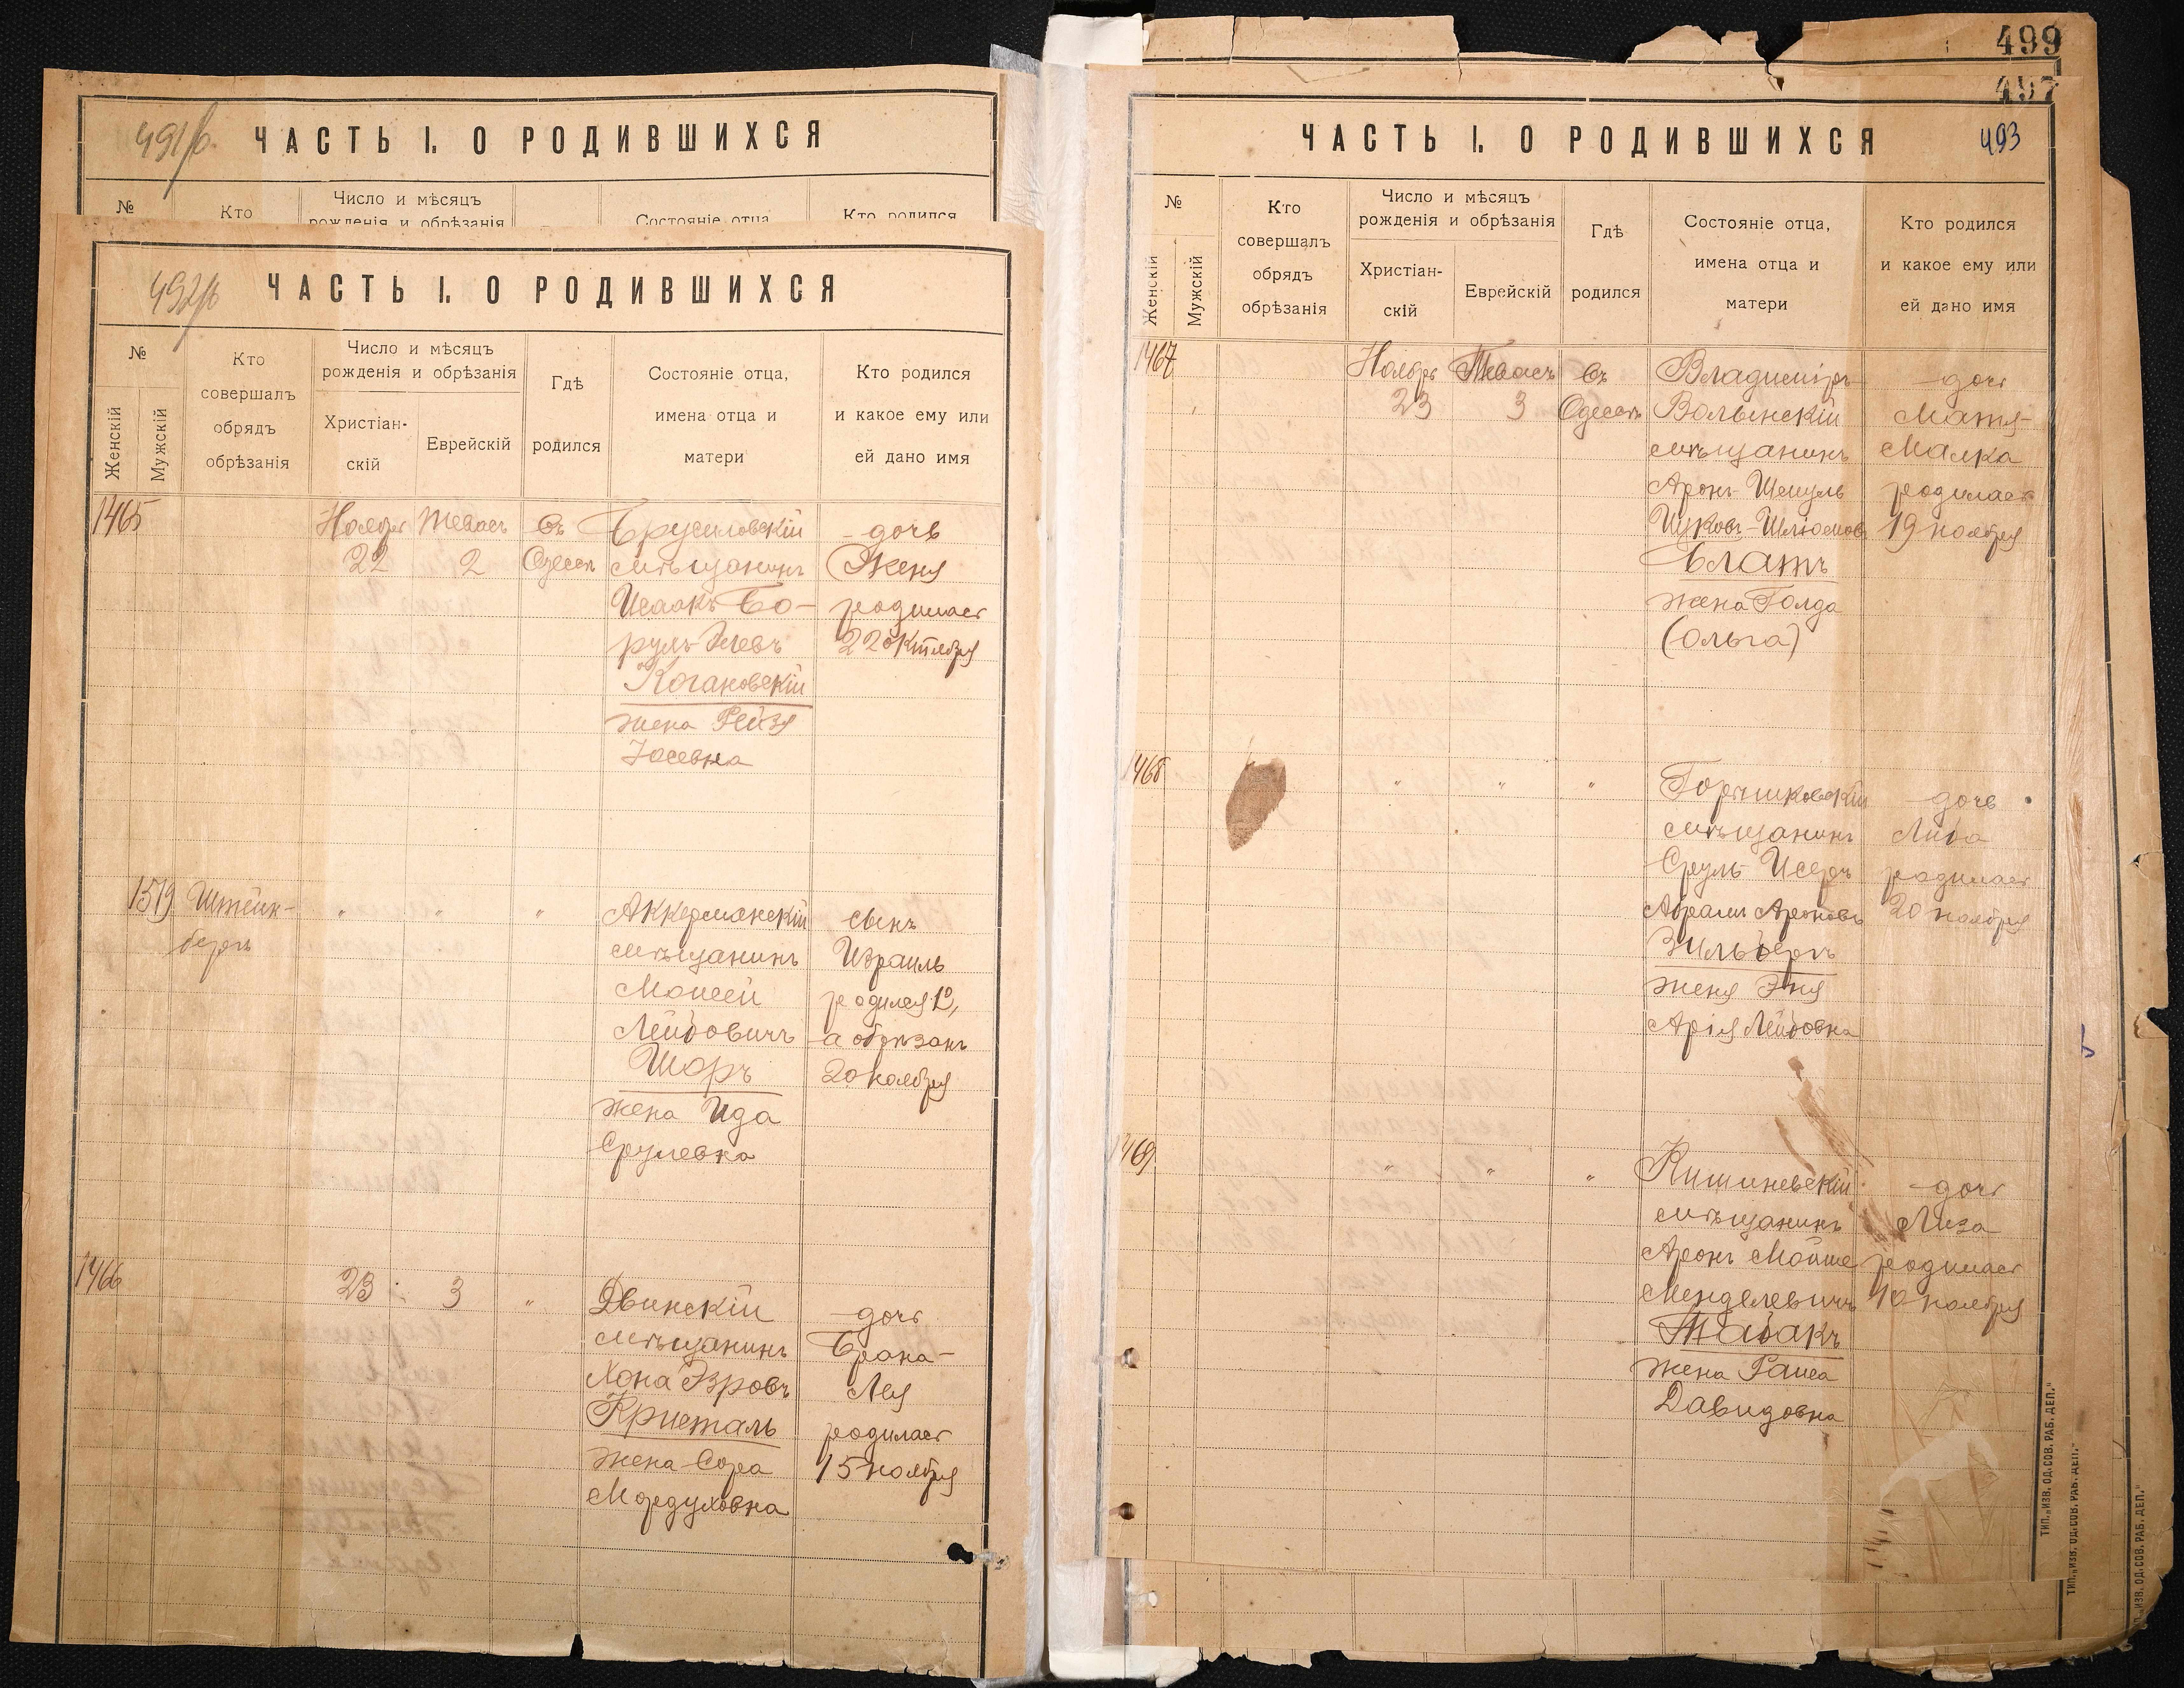 491/б.
ЧАСТЬ I. О РОДИВШИХСЯ
№
Кто
Число и мѣсяцъ
рожденія и обрѣзанія
Состояніе отца
Кто родился
492/б
ЧАСТЬ I. О РОДИВШИХСЯ
№
Женскій
Мужскій
Кто
совершалъ
обрядъ
обрѣзанія
Число и мѣсяцъ
рожденія и обрѣзанія
Христіан-
скій
Еврейскій
Гдѣ
родился
Состояніе отца,
имена отца и
матери
Кто родился
и какое ему или
ей дано имя
1465
Ноября
22
Тевасъ
2
Въ
Одессѣ
Брусиловскій
мѣщанинъ
Исаакъ Бо-
руль
Когановскій
жена Рейзя
Іосевна
дочь
Женя
родилась
22 октября
1519
Штейн-
бергъ
"
"
"
Аккерманскій
мѣщанинъ
Моисей
Лейбовичъ
Шоръ
жена Ида
Срулевна
сынъ
Израиль
родился 12,
а обрѣзанъ
20 ноября
1466
23
3
"
Двинскій
мѣщанинъ
Хона
Кристаль
жена Сора
Мордуховна
дочь
Брана-
Лея
родилась
15 ноября
499
497
493
ЧАСТЬ I. О РОДИВШИХСЯ
№
Женскій
Мужскій
Кто
совершалъ
обрядъ
обрѣзанія
Число и мѣсяцъ
рожденія и обрѣзанія
Христіан-
скій
Еврейскій
Гдѣ
родился
Состояніе отца,
имена отца и
матери
Кто родился
и какое ему или
ей дано имя
1467
Ноября
23
Тевасъ
3
Въ
Одессѣ
Владиміръ
Волынскій
мѣщанинъ
Аронъ-Шмуль
Ицковъ-Шлiомовъ
Блатъ
жена Голда
(Ольга)
дочь
Матя-
Малка
родилась
19 ноября
1468
"
"
"
мѣщанинъ
Сруль Исеръ
Абрамъ Ароновъ
Зильбергъ
жена Эня
Лейбовна
дочь
Люба
родилась
20 ноября
1469
"
"
"
Кишиневскій
мѣщанинъ
Аронъ Мойше
Менделевичъ
Табакъ
жена
Давидовна
дочь
Лиза
родилась
10 ноября
ТИП. „ИЗВ. ОД. СОВ. РАБ. ДЕП."
ТИП. „ИЗВ. ОД. СОВ. РАБ. ДЕП."
„ИЗВ. ОД. СОВ. РАБ. ДЕП."